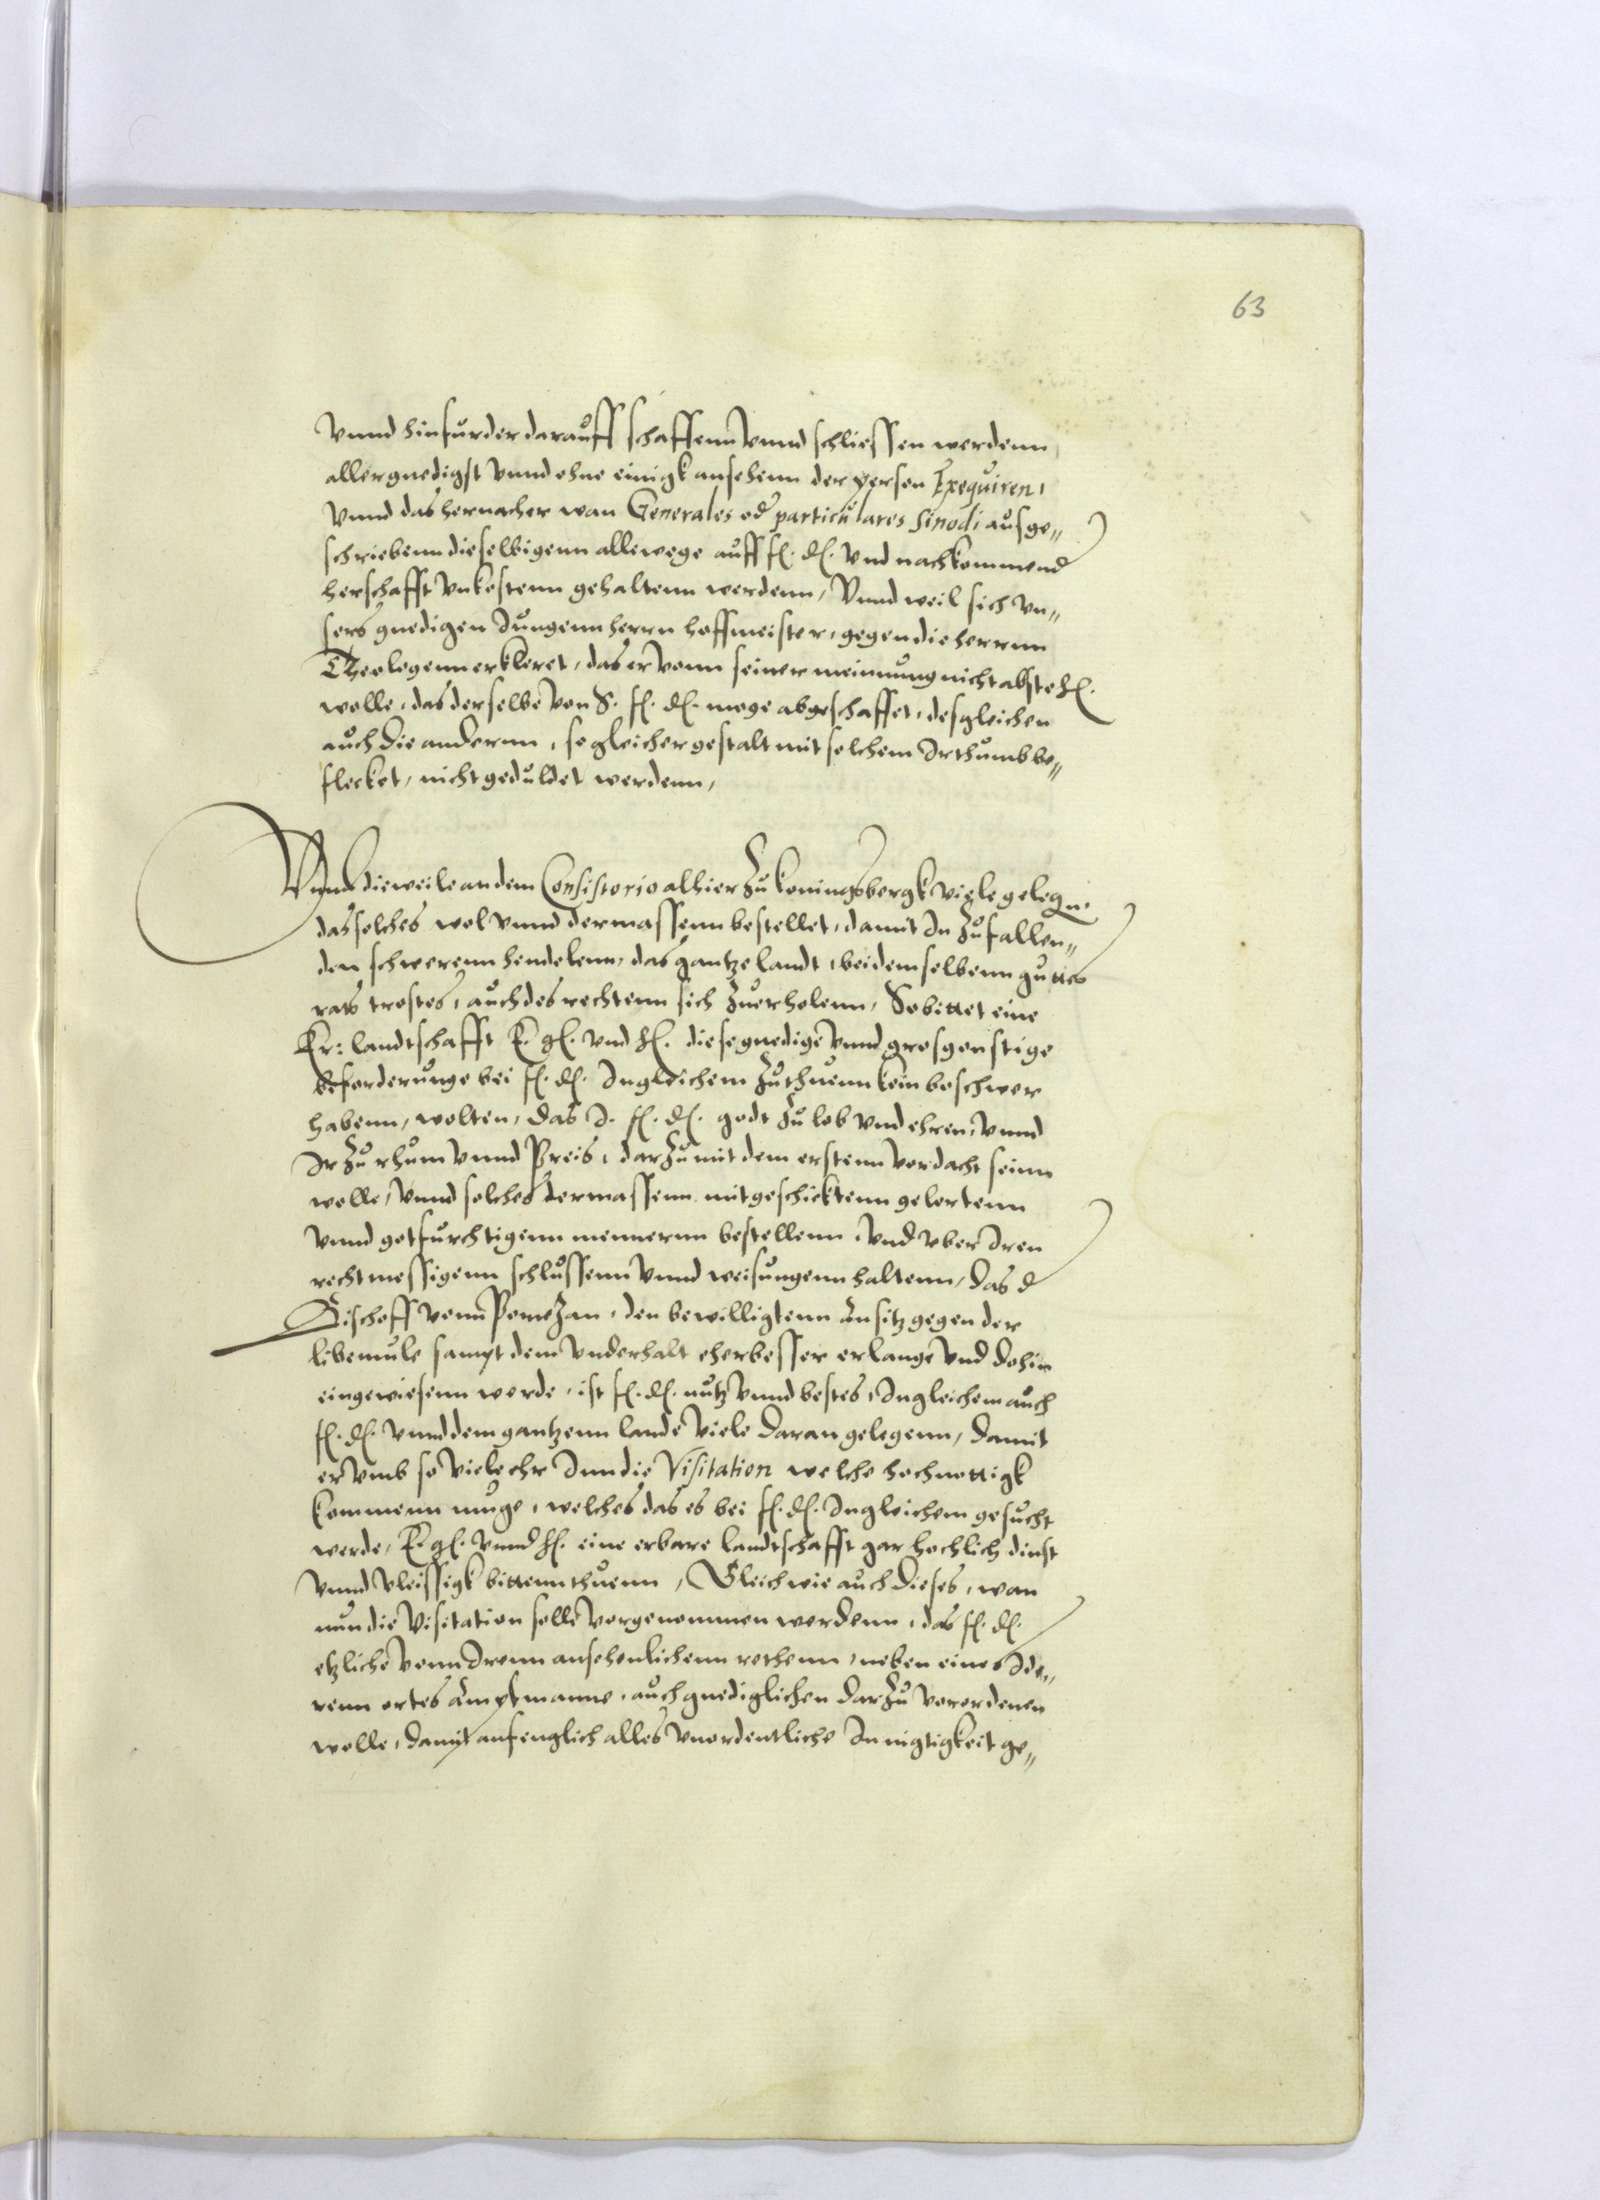 63
vnnd hinfurder darauff schaffenn vnnd schliessen werdenn,
allergnedigst vnnd ohne einigk ansehenn der person Exequiren,
vnnd das hernacher wan Generales od particulares Sinodi ausge„
schriebenn dieselbigenn allewege auff f. d. vnd nachkommend
herschafft vnkostenn gehaltenn werdenn, Vnnd weil sich vn„
sers gnedigen Jungenn herrn hoffmeister, gegen die herrnn
Theologenn erkleret, das er vonn seiner meinnung nicht abstehen
wolle, das derselbe von S. f. d. moge abgeschaffet, desgleichen
auch die anderenn, so gleicher gestalt mit solchem Irthumb be„
flecket, nicht geduldet werdenn,
Vnnd dieweile an dem Consistorio alhier zu koningsbergk viele gelegn,
das solches wol vnnd dermassenn bestellet, damit In zufallen„
den schwerenn hendelenn, das gantze landt, bei demselbenn guttes
rats trostes, auch des rechtenn sich zuerholenn, So bittet eine
Er: landtschafft E. g. vnd h. diese gnedige vnnd grosgenstige
beforderunge bei f. d. Ingleichem zuthuenn kein beschwer
habenn, wolten, das I. f. d. godt zu lob vnd ehren, vnnd
Ir zu rhum vnnd Preis, darzu mit dem erstenn vordacht seinn
wolle, vnnd solches dermassenn mit geschicktenn gelertenn
vnnd gotfurchtigenn mennernn bestellenn, vnd vber Iren
rechtmessigenn schlussenn vnnd weisungenn haltenn, das d
Bischoff vonn Pomezan, den bewilligtenn Ansitz gegen der
libemule sampt dem vnderhalt eher besser erlange vnd dohin
eingewiesenn werde, ist f. d. nutz vnnd bestes, Ingleichem auch
f. d. vnnd dem gantzenn lande viele daran gelegenn, damit
er vmb so viele ehr Inn die Visitation welche hochnottigk
kommenn muge, welches das es bei f. d. Ingleichem gesucht
werde, E. g. vnnd h. eine erbare landtschafft gar hochlich dinst
vnnd vleissigk bittenn thuenn, Gleich wie auch dieses, wan
nun die Visitation solle vorgenommen werdenn, das f. d.
etzliche vonn Irenn ansehenlichenn rethenn, neben eines Ide„
renn ortes Amptmanne, auch gnediglichen darzu verordenen
wolle, damit anfenglich alles vnordentliche In nigtigkeit ge„